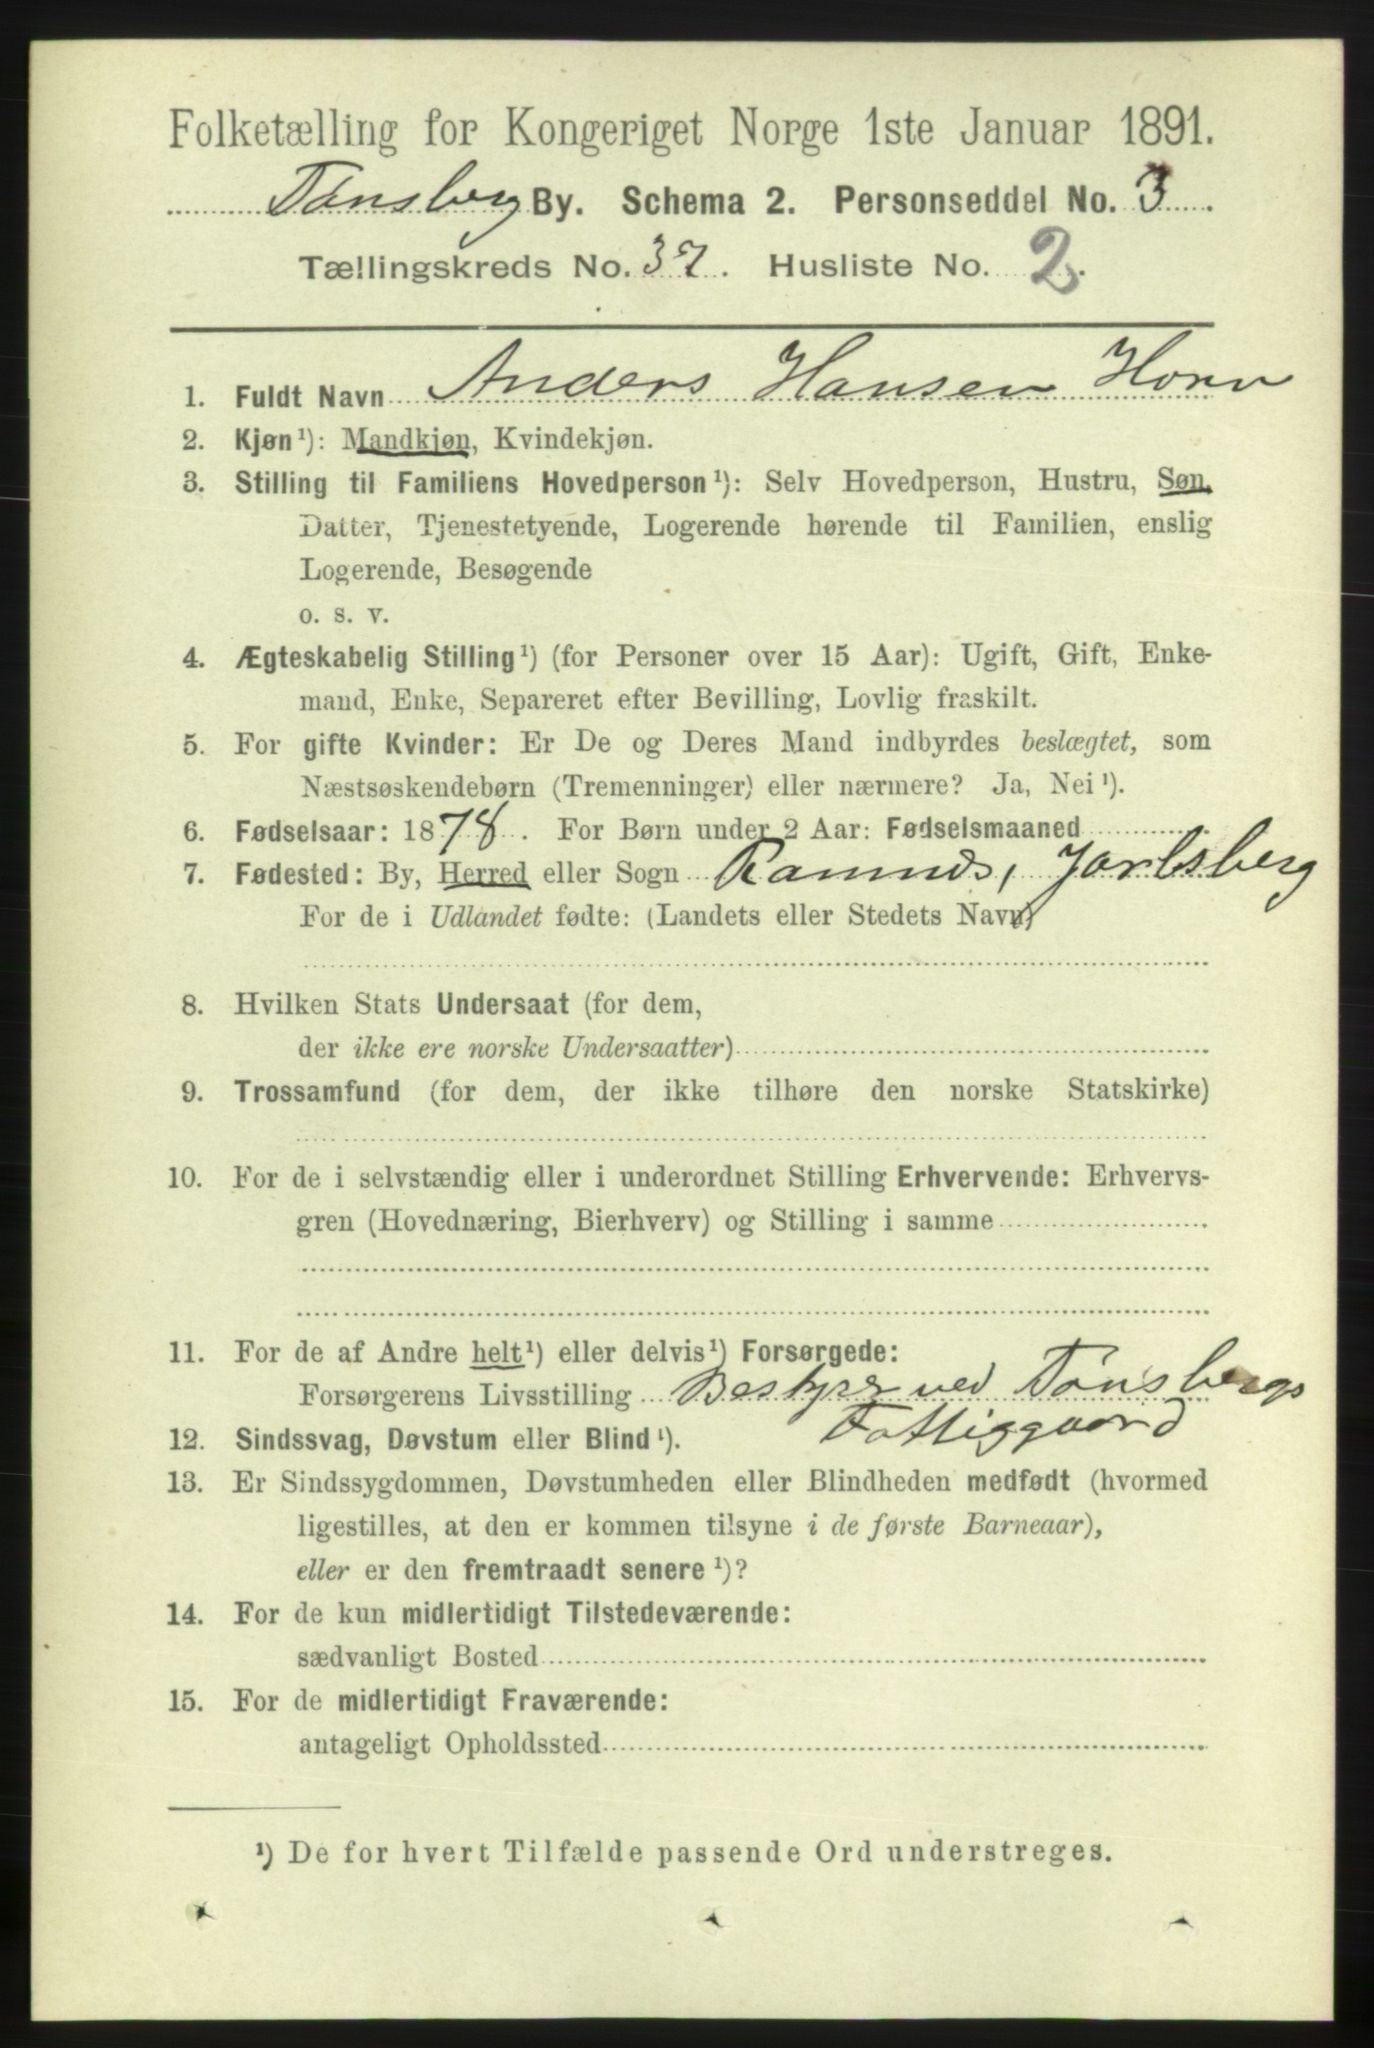 Folketælling for Kongeriget Norge 1ste Januar 1891.
Tønsberg By. Schema 2. Personseddel No. 3.
Tællingskreds No. 37. Husliste No. 2.
1. Fuldt Navn Anders Hansen Horn
2. Kjøn¹): Mandkjøn, Kvindekjøn.
3. Stilling til Familiens Hovedperson¹): Selv Hovedperson, Hustru, Søn,
Datter, Tjenestetyende, Logerende hørende til Familien, enslig
Logerende, Besøgende
o. s. v.
4. Ægteskabelig Stilling¹) (for Personer over 15 Aar): Ugift, Gift, Enke-
mand, Enke, Separeret efter Bevilling, Lovlig fraskilt.
5. For gifte Kvinder: Er De og Deres Mand indbyrdes beslægtet, som
Næstsøskendebørn (Tremenninger) eller nærmere? Ja, Nei¹).
6. Fødselsaar: 1878. For Børn under 2 Aar: Fødselsmaaned
7. Fødested: By, Herred eller Sogn Ramnæs, Jarlsberg
For de i Udlandet fødte: (Landets eller Stedets Navn)
8. Hvilken Stats Undersaat (for dem,
der ikke ere norske Undersaatter)
9. Trossamfund (for dem, der ikke tilhøre den norske Statskirke)
10. For de i selvstændig eller i underordnet Stilling Erhvervende: Erhvervs-
gren (Hovednæring, Bierhverv) og Stilling i samme
11. For de af Andre helt¹) eller delvis¹) Forsørgede:
Forsørgerens Livsstilling Bestyrer ved Tønsbergs
Fattiggaard
12. Sindssvag, Døvstum eller Blind¹).
13. Er Sindssygdommen, Døvstumheden eller Blindheden medfødt (hvormed
ligestilles, at den er kommen tilsyne i de første Barneaar),
eller er den fremtraadt senere¹)?
14. For de kun midlertidigt Tilstedeværende:
sædvanligt Bosted
15. For de midlertidigt Fraværende:
antageligt Opholdssted
¹) De for hvert Tilfælde passende Ord understreges.